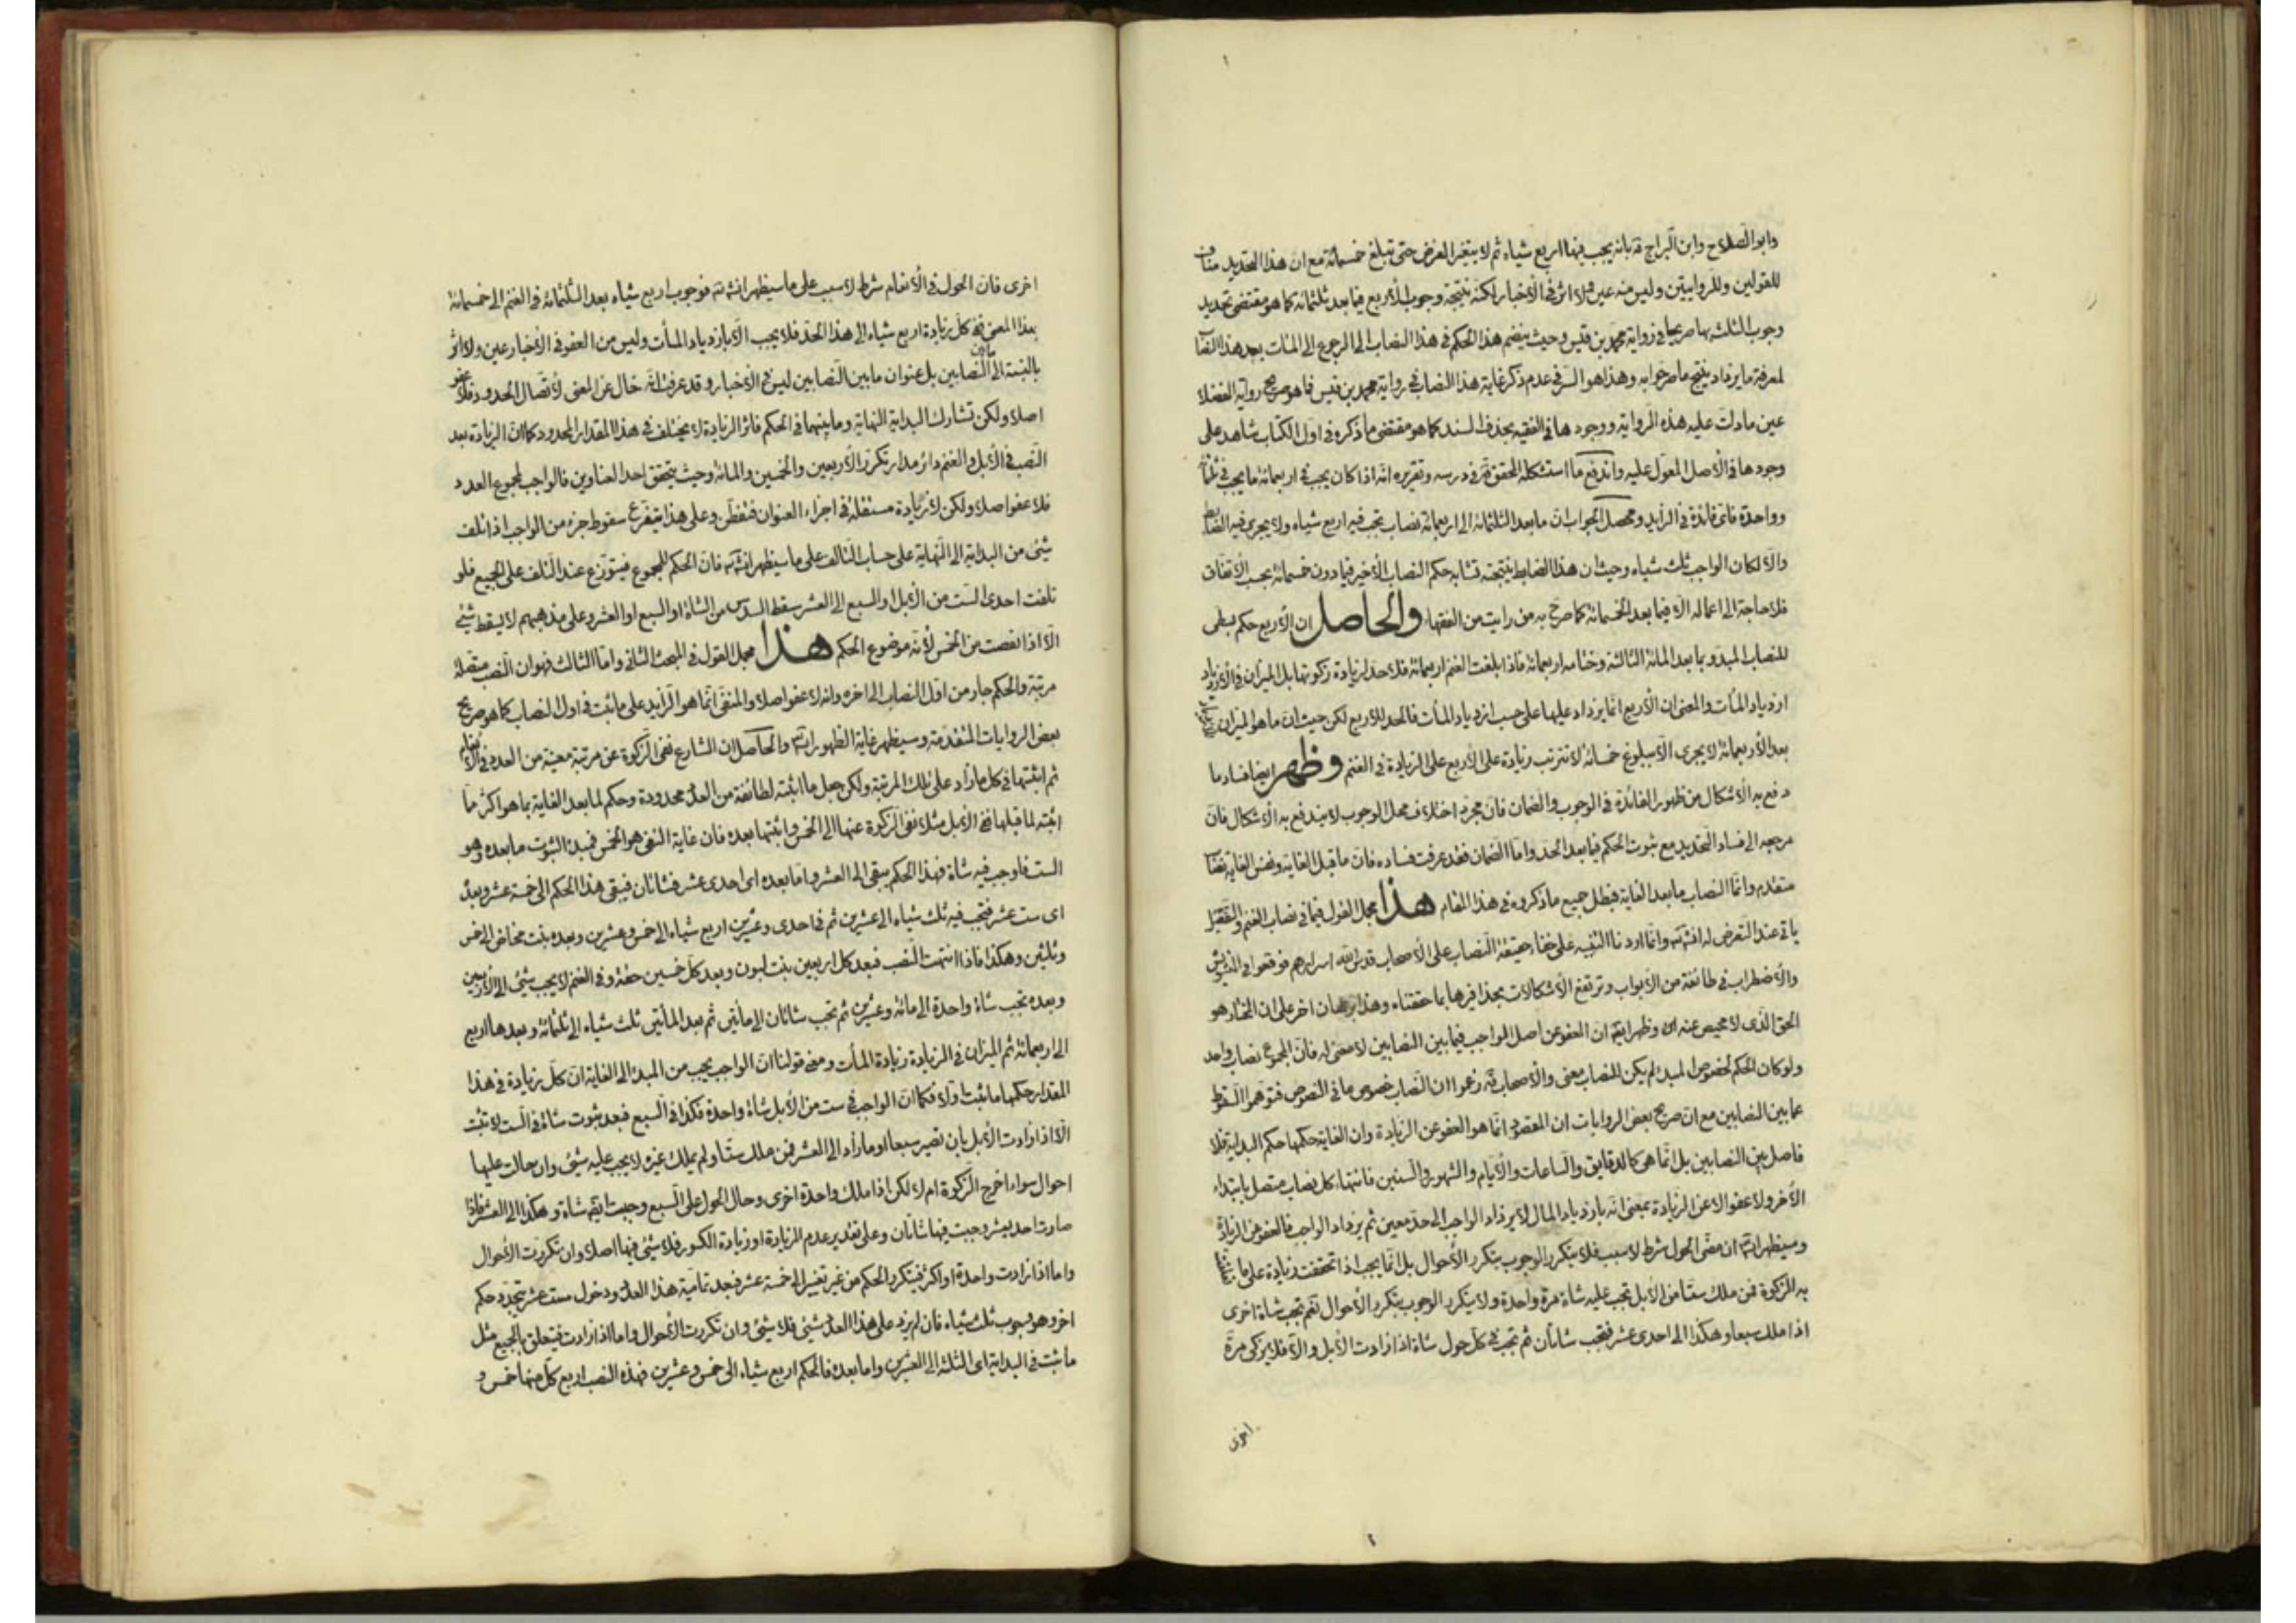 وابو الصلاح وابن البراج قه بانه يجب فيها اربع شياه ثم لا يتغير الفرض حتى تبلغ خمسمائة مع ان هذا التحديد مناف
للقولين وللروايتين وليس منه عين ولا اثر في الاخبار لكنه نتيجة وجوب الاربع فيما بعد ثلثمائة كما هو مقتضى تحديد
وجوب الثلث بها صريحا في رواية محمد بن قيس وحيث ينضم هذا الحكم في هذا النصاب الى الرجوع الى المئات بعد هذا النصاب
لمعرفة ما يزداد ينتج ما صرحوا به وهذا هو السر في عدم ذكر غاية هذا النصاب في رواية محمد بن قيس فما هو صريح رواية الفضلا
عين ما دلت عليه هذه الرواية ووجودها في الفقيه بحذف السند كما هو مقتضى ما ذكره في اول الكتاب شاهد على
وجودها في الاصل المعول عليه واندفع ما استشكله المحقق قه في درسه وتقريره انه اذا كان يجب في اربعمائة ما يجب في ثلثمائة
وواحدة فاي فائدة في الزايد ومحصل الجواب ان ما بعد الثلثمائة الى اربعمائة نصاب يجب فيه اربع شياه ولا يجري فيه الضابط
والا لكان الواجب ثلث شياه وحيث ان هذا الضابط نتيجته تشابه حكم النصاب الاخير فيما دون خمسمائة بحسب الاتفاق
فلا حاجة الى اعماله الا فيما بعد الخمسمائة كما صرح به من رايت من الفقهاء والحاصل ان الاربع حكم يبقى
للنصاب المبدو بما بعد المائة الثالثة وختامه اربعمائة فاذا بلغت الغنم اربعمائة فلا حد لزيادة زكوتها بل الميزان في الازدياد
ازدياد المئات والمعنى ان الاربع انما يزداد عليها على حسب ازدياد المئات فالحد للاربع لكن حيث ان ما هو الميزان
بعد الاربعمائة لا يجري الا ببلوغ خمسمائة لا تترتب زيادة على الاربع على الزيادة في الغنم وظهر ايضا فساد ما
دفع به الاشكال من ظهور الفائدة في الوجوب والضمان فان مجرد اختلاف محل الوجوب لا يندفع به الاشكال فان
مرجعه الى فساد التحديد مع ثبوت الحكم فيما بعد الحد واما الضمان فقد عرفت فساده فان ما قبل الغاية ونفس الغاية نصاب
متقدم وانما النصاب ما بعد الغاية فبطل جميع ما ذكروه في هذا المقام هذا مجمل القول فيما في نصاب الغنم والتفصيل
ياتي عند التعرض له انشاء الله وانما اردنا التنبيه على خفاء حقيقة النصاب على الاصحاب قدس الله اسرارهم فوقعوا في التشويش
والاضطراب في طائفة من الابواب وترتفع الاشكالات بحذافيرها بما حققناه وهذا برهان اخر على ان المختار هو
الحق الذي لا محيص عنه وظهر ايضا ان العفو عن اصل الواجب فيما بين النصابين لا معنى له فان المجموع نصاب واحد
ولو كان الحكم لخصوص المبدء لم يكن للنصاب معنى والاصحاب قه زعموا ان النصاب خصوص ما في النصوص فتوهموا السقوط
عما بين النصابين مع ان صريح بعض الروايات ان المقصود انما هو العفو عن الزيادة وان الغاية حكمها حكم البداية فلا
فاصل بين النصابين بل انما هي كالدقايق والساعات والايام والشهور والسنين فانتهاء كل نصاب متصل بابتداء
الاخر ولا عفو الا عن الزيادة بمعنى انه بازدياد المال لا يزداد الواجب الى حد معين ثم يزداد الواجب فالعفو عن الزيادة
وسيظهر ان مضى الحول شرط لا سبب فلا يتكرر الوجوب بتكرر الاحوال بل انما يجب اذا تحققت زيادة على ما
به الزكوة فمن ملك ستا من الابل تجب عليه شاة مرة واحدة ولا يتكرر الوجوب بتكرر الاحوال نعم تجب شاة اخرى
اذا ملك سبعا وهكذا الى احدى عشر فتجب شاتان ثم تجب في كل حول شاة اذا زادت الابل والا فلا يزكى مرة
اخرى
اخرى فان الحول في الانعام شرط لا سبب على ما سيظهر انشاء الله فوجوب اربع شياه بعد الثلثمائة في الغنم الى خمسمائة
بهذا المعنى ففي كل زيادة اربع شياه الى هذا الحد فلا يجب الا بازدياد المئات وليس من العفو في الاخبار عين ولا اثر
بالنسبة الى ما بين النصابين بل عنوان ما بين النصابين ليس في الاخبار وقد عرفت انه خال عن المعنى لاتصال الحدود فلا عفو
اصلا ولكن تشارك البداية النهاية وما بينهما في الحكم فاثر الزيادة لا يختلف في هذا المقدار المحدود كما ان الزيادة بعد
النصب في الابل والغنم دائر مدار تكرر الاربعين والخمسين والمائة وحيث يتحقق احد العناوين فالواجب لمجموع العدد
فلا عفو اصلا ولكن لا زيادة مستقلة في اجزاء العنوان فتفطن وعلى هذا يتفرع سقوط جزء من الواجب اذا تلف
شئ من البداية الى النهاية على حساب التالف على ما سيظهر انشاء الله فان الحكم للمجموع فيتوزع عند التلف على الجميع فلو
تلفت احدى الست من الابل او السبع الى العشر سقط السدس من الشاة او السبع او العشر وعلى مذهبهم لا يسقط شئ
الا اذا نقصت من الخمس لانه موضوع الحكم هذا مجمل القول في المبحث الثاني واما الثالث فهو ان النصب متصلة
مرتبة والحكم جار من اول النصاب الى اخره وانه لا عفو اصلا والمنفى انما هو الزايد على ما ثبت في اول النصاب كما هو صريح
بعض الروايات المتقدمة وسيظهر غاية الظهور والحاصل ان الشارع نفى الزكوة عن مرتبة معينة من العدد في الانعام
ثم اثبتها في كل ما زاد على تلك المرتبة ولكن جعل ما اثبته لطائفة من العدد محدودة وحكم لما بعد الغاية بما هو اكثر مما
اثبته لما قبلها ففي الابل مثلا نفى الزكوة عنها الى الخمس واثبتها بعده فان غاية النفى هو الخمس فمبدء الثبوت ما بعده وهو
الست فاوجب فيه شاة فهذا الحكم يبقى الى العشر واما بعده اى احدى عشر فشاتان فيبقى هذا الحكم الى خمسة عشر وبعده
اى ست عشر فتجب فيه ثلث شياه الى عشرين ثم في احدى وعشرين اربع شياه الى خمس وعشرين وبعده بنت مخاض الى خمس
وثلثين وهكذا فاذا انتهت النصب فبعد كل اربعين بنت لبون وبعد كل خمسين حقة وفي الغنم لا يجب شئ الى الاربعين
وبعده تجب شاة واحدة الى مائة وعشرين ثم تجب شاتان الى ماتين ثم بعد الماتين ثلث شياه الى ثلثمائة وبعدها اربع
الى اربعمائة ثم الميزان في الزيادة زيادة المئات ومعنى قولنا ان الواجب يجب من المبدء الى الغاية ان كل زيادة في هذا
المقدار حكمها ما ثبت اولا فكما ان الواجب في ست من الابل شاة واحدة فكذا في السبع فبعد ثبوت شاة في الست لا تثبت
الا اذا زادت الابل بان تصير سبعا او ما زاد الى العشر فمن ملك ستا ولم يملك غيره لا يجب عليه شئ وان حالت عليها
احوال سواء اخرج الزكوة ام لا لكن اذا ملك واحدة اخرى وحال الحول على السبع وجبت ايضا شاة وهكذا الى العشر فاذا
صارت احد عشر وجبت فيها شاتان وعلى تقدير عدم الزيادة او زيادة الكسور فلا شئ فيها اصلا وان تكررت الاحوال
واما اذا زادت واحدة او اكثر فيتكرر الحكم من غير تغيير الى خمسة عشر فبعد تمامية هذا العدد ودخول ست عشر يتجدد حكم
اخر وهو وجوب ثلث شياه فان لم يزد على هذا العدد شئ فلا شئ وان تكررت الاحوال واما اذا زادت فيتعلق بالجميع مثل
ما ثبت في البداية اى الثلثة الى العشرين واما بعده فالحكم اربع شياه الى خمس وعشرين فهذه النصب اربع كل منها خمس و